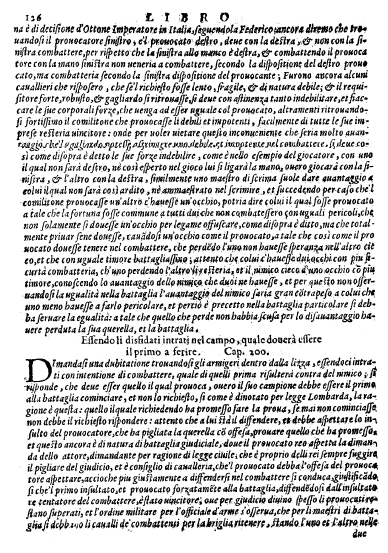 126 LIBRO
na è di decisione d'Ottone Imperatore in Italia, seguendola Federico; ancora diremo che tro-
uandosi il prouocatore sinistro, e'l prouocato destro, deue con la destra, & non con la si-
nistra combattere, per rispetto che la sinistra alla manco è destra, & combattendo il prouoca-
tore con la mano sinistra non ueneria a combattere, secondo la dispositione del destro prouo
cato, combatteria secondo la sinistra dispositione del prouocante; Furono ancora alcuni
cauallieri che risposero, che se'l richiesto fosse lento, fragile, & di natura debile; & il requi-
sitore forte, robusto, & gagliardo si ritrouasse, si deue con astinenza tanto indebilitare, et fiac-
care le sue corporali forze, che uenga ad esser uguale col prouocato, altramenti ritrouando-
si fortissimo il comilitone che prouocasse li debili et impotenti, facilmente di tutte le sue im-
prese resteria uincitore: onde per uoler uietare questo inconueniente che seria molto auan-
taggio, che'l gagliardo
me di sopra è detto le sue forze indebilire, come nello esempio del giocatore, con uno
il qual non sarà destro, nè così esperto nel gioco lui si ligarà la mano, ouero giocarà con la si-
nistra, & l'altro con la destra, similmente uno maestro di scrima suole dare auantaggio a
colui il qual non sarà così ardito, nè ammaestrato nel scrimire, et succedendo per caso che'l
comilitone prouocasse un'altro c'hauesse un'occhio, potria dire colui il qual fosse prouocato
a tale che la fortuna fosse commune a tutti dui che non combattessero con uguali pericoli, che
non solamente si douesse un'occhio per legame offuscare, come di sopra è ditto, ma che total-
mente priuar sene douesse, cauādosi un'occhio come il prouocato, a tale che così come il pro
uocato douesse tenere nel combattere, che perdēdo l'uno non hauesse speranza nell'altro cie
co, et che con uguale timore battagliassino; attento che colui c'hauesse dui occhi con piu si-
curtà combatteria, ch'uno perdendo l'altro li resteria, et il nimico cieco d'uno occhio cō più
timore, conoscendo lo auantaggio dello nimico che duoi ne hauesse, et per questo non osser-
uandosi la ugualità nella battaglia l'auantaggio del nimico saria gran cōtrapeso a colui che
uno meno hauesse a farlo pericolare, et perciò è precetto nella battaglia particolare si deb-
ba seruare la equalità: a tale che quello che perde non habbia scusa per lo disauantaggio ha-
uere perduta la sua querella, et la battaglia.
Essendo li disfidati intrati nel campo, quale douerà essere
il primo a ferire. Cap. 200.
Dimandasi una dubitatione trouandosi gli armigeri dentro dalla lizza, essendoci intra-
ti con intentione di combattere, quale di quelli prima risultarà contra del nimico; si
risponde, che deue esser quello il qual prouoca, ouero il suo campione debbe essere il primo
alla battaglia cominciare, et non lo richiesto, sì come è dinotato per legge Lombarda, la ra-
gione è questa: quello il quale richiedendo ha promesso fare la proua, se mai non cominciasse
non debbe il richiesto rispondere: attento che a lui stà il diffendere, et debbe aspettare lo in-
sulto del prouocatore, che ha pigliata la querella cō offesa, prouare quello che ha promesso,
et questo ancora è di natura di battaglia giudiciale, doue il prouocato reo aspetta la diman-
da dello attore, dimandante per ragione di legge ciuile; che è proprio delli rei sempre fuggire
il pigliare del giudicio, et è consiglio di caualleria, che'l prouocato debba l'offesa del prouoca
tore aspettare, acciò che piu giustamente a diffendersi nel combattere si conduca, significādo
si che'l primo insultato, et prouocato sforzatamēte alla battaglia, diffendēdosi dall'insultato
re tentatore del combattere, è stato uincitore; oue per giudicio diuino spesso li prouocatori
stano superati, et l'ordine militare per l'officiale d'arme s'osserua, che per li maestri di batta-
glia si debbano li caualli de' combattenti per la briglia ritenere, stando l'uno et l'altro nelle
due